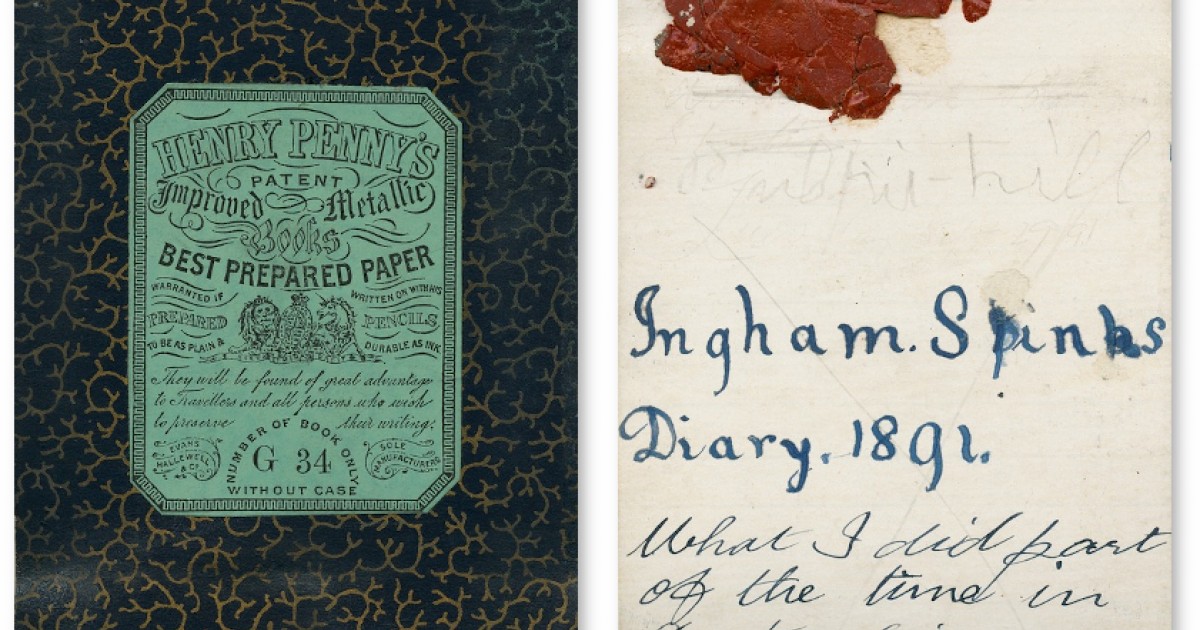 HENRY PENNY'S
PATENT
Improved Metallic
Books
BEST PREPARED PAPER
WARRANTED IF WRITTEN ON WITH HIS
PREPARED PENCILS
TO BE AS PLAIN & DURABLE AS INK
They will be found of great advantage
to Travellers and all persons who wish
to preserve their writing:
EVANS
HALLEWELL
& Co
NUMBER OF BOOK ONLY
G 34
WITHOUT CASE
SOLE
MANUFACTURERS
Ingham. Spinks
Diary. 1891.
What I did part
of the time in